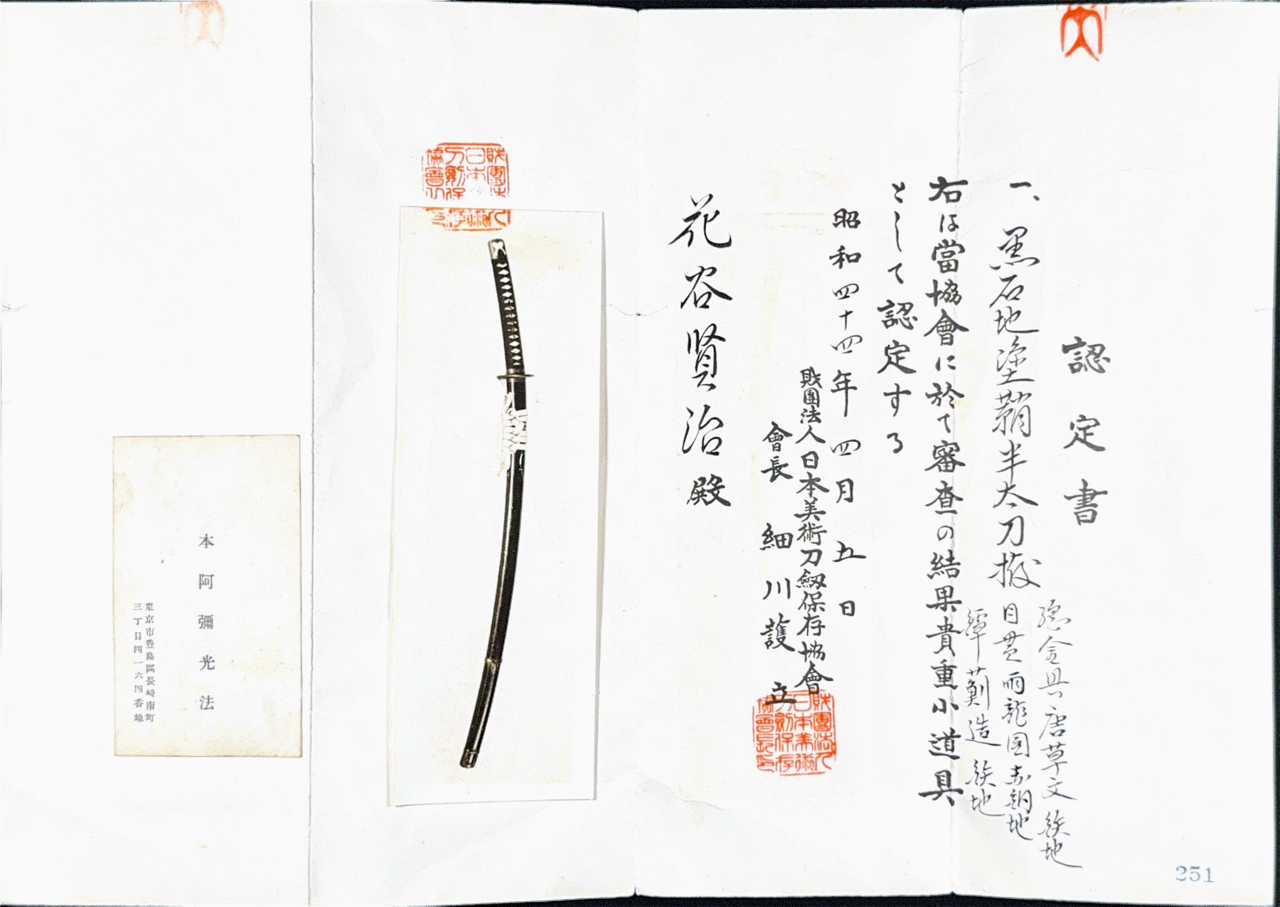 認定書
一、黒石地塗鞘半太刀拵
総金具唐草文鉄地
目貫雨龍図赤銅地
鐔 薊造 鉄地
右は當協會に於て審査の結果貴重小道具
として認定する
昭和四十四年四月五日
財團法人日本美術刀劔保存協會
會長 細川護立
花谷賢治殿
本阿彌光法
東京市豊島區長崎南町
三丁目四一六四番地
251